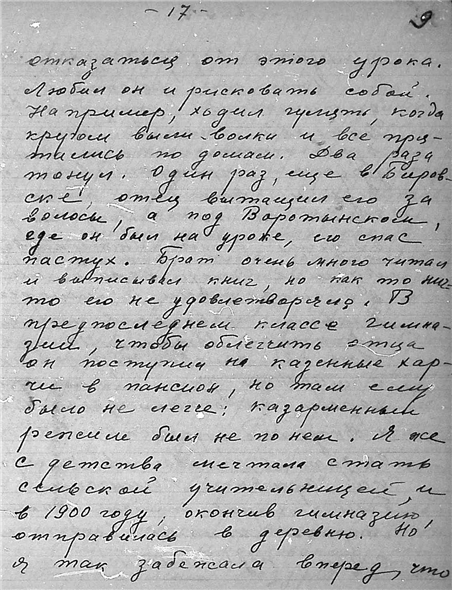 - 17 -
9
отказаться от этого урока.
Любил он и рисковать собой.
Например, ходил гулять, когда
кругом выли волки и все пря-
тились по домам. Два раза
тонул. Один раз, еще в Боров-
ске, отец вытащил его за
волосы, а под Воротынском,
где он был на уроке, его спас
пастух. Брат очень много читал
и выписывал книг, но как то нич-
то его не удовлетворяло. В
предпоследнем классе гимна-
зии, чтобы облегчить отца
он поступил на казенные хар-
чи в пансион, но там ему
было не легче: казарменный
режим был не по нем. Я же
с детства мечтала стать
сельской учительницей, и
в 1900 году, окончив гимназию,
отправилась в деревню. Но
я так забежала вперед, что